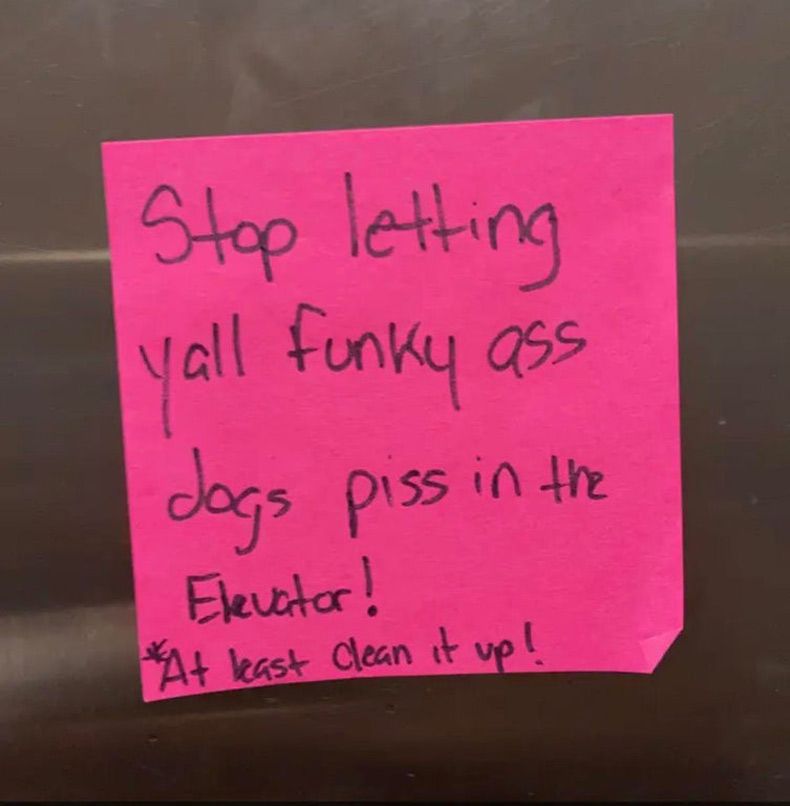 Stop letting
yall funky ass
dogs piss in the
Elevator!
*At least clean it up!